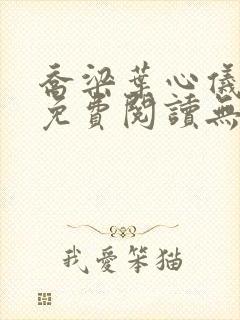 喬梁葉心儀
免費閱讀無
我愛笨貓